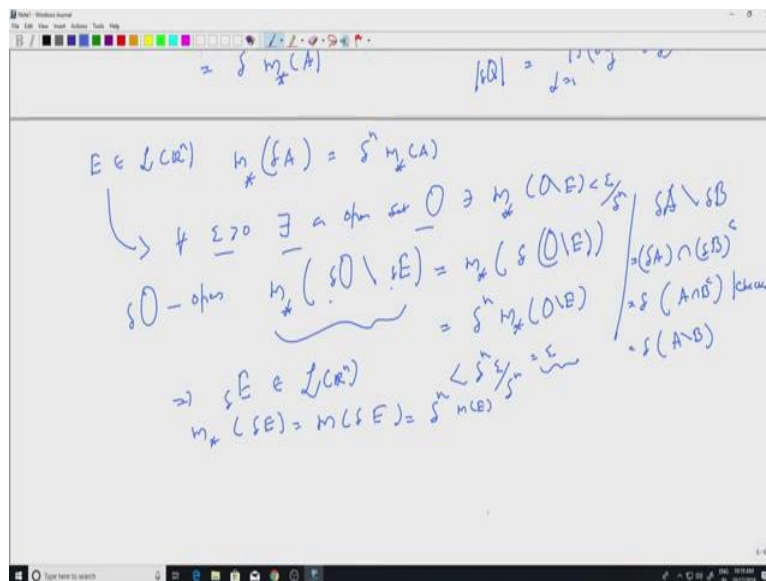 Note1 - Windows Journal
File Edit View Insert Actions Tools Help
= δ m_*(A)
|δQ| =
E ∈ L(ℝⁿ) m_*(δA) = δⁿ m_*(A)
∀ ε>0 ∃ an open set O ∋ m_*(O\E) < ε/δⁿ
δO - open m_*(δO \ δE) = m_*(δ(O\E))
= δⁿ m_*(O\E)
< δⁿ ε/δⁿ = ε
⇒ δE ∈ L(ℝⁿ)
m_*(δE) = m(δE) = δⁿ m(E)
δA \ δB
= (δA) ∩ (δB)ᶜ
= δ(A∩Bᶜ) | check
= δ(A\B)
Type here to search